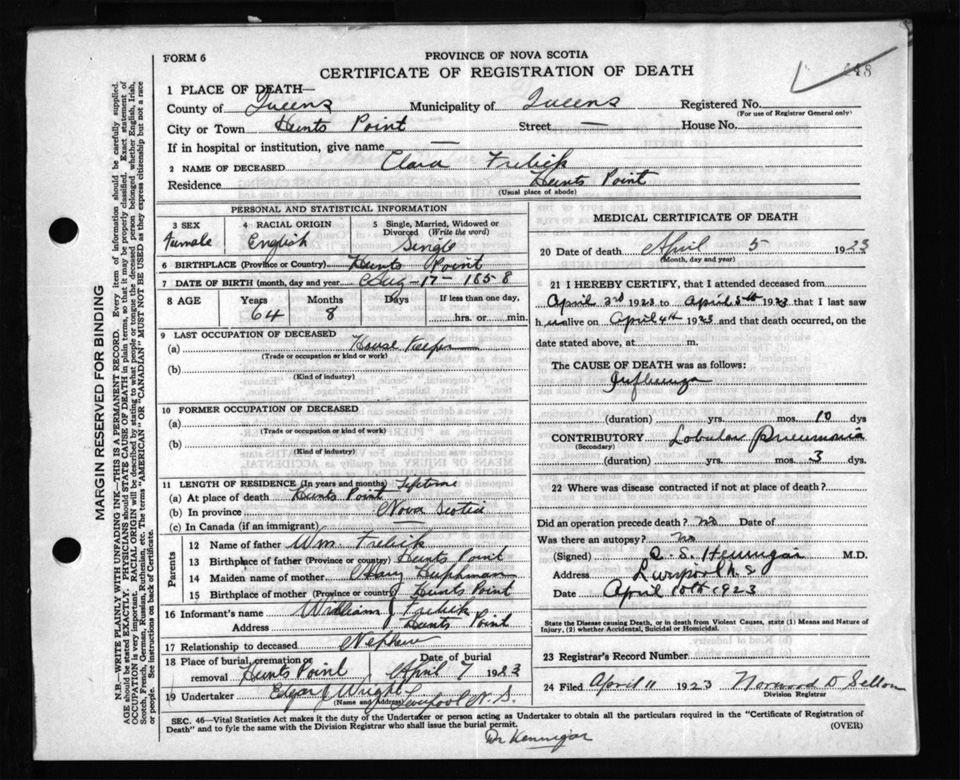 FORM 6
PROVINCE OF NOVA SCOTIA
CERTIFICATE OF REGISTRATION OF DEATH
1 PLACE OF DEATH—
County of Queens Municipality of Queens Registered No.
(For use of Registrar General only)
City or Town Hunts Point Street — House No.
If in hospital or institution, give name —
2 NAME OF DECEASED Clara Frelick
Residence Hunts Point
(Usual place of abode)
PERSONAL AND STATISTICAL INFORMATION
3 SEX 4 RACIAL ORIGIN 5 Single, Married, Widowed or Divorced (Write the word)
Female English Single
6 BIRTHPLACE (Province or Country) Hunts Point
7 DATE OF BIRTH (month, day and year) Aug - 17 - 1858
8 AGE Years Months Days If less than one day,
64 8 hrs. or min.
9 LAST OCCUPATION OF DECEASED
(a) House Keeper
(Trade or occupation or kind or work)
(b)
(Kind of industry)
10 FORMER OCCUPATION OF DECEASED
(a)
(Trade or occupation or kind of work)
(b)
(Kind of industry)
11 LENGTH OF RESIDENCE (In years and months) Lifetime
(a) At place of death Hunts Point
(b) In province Nova Scotia
(c) In Canada (if an immigrant) —
Parents
12 Name of father Wm. Frelick
13 Birthplace of father (Province or country) Hunts Point
14 Maiden name of mother Huphman
15 Birthplace of mother (Province or country) Hunts Point
16 Informant's name William J Frelick
Address Hunts Point
17 Relationship to deceased Nephew
18 Place of burial, cremation or removal Hunts Point Date of burial April 7 1923
19 Undertaker Edgar J Wright Liverpool N.S.
(Name and Address)
MEDICAL CERTIFICATE OF DEATH
20 Date of death April 5 1923
(Month, day and year)
21 I HEREBY CERTIFY, that I attended deceased from
April 3rd 1923 to April 5th 1923 that I last saw
h alive on April 4th 1923 and that death occurred, on
date stated above, at m.
The CAUSE OF DEATH was as follows:
Influenza
(duration) yrs. mos. 10 dys
CONTRIBUTORY Lobular Pneumonia
(Secondary)
(duration) yrs. mos. 3 dys.
22 Where was disease contracted if not at place of death?
Did an operation precede death? no Date of
Was there an autopsy? No
(Signed) Hennigar M.D.
Address Liverpool N.S
Date April 10th 1923
State the Disease causing Death, or in death from Violent Causes, state (1) Means and Nature of
Injury, (2) whether Accidental, Suicidal or Homicidal.
23 Registrar's Record Number
24 Filed April 11 1923 Norwood D. Sellon
Division Registrar
SEC. 46—Vital Statistics Act makes it the duty of the Undertaker or person acting as Undertaker to obtain all the particulars required in the "Certificate of Registration of
Death" and to fyle the same with the Division Registrar who shall issue the burial permit. (OVER)
Dr Hennigar
MARGIN RESERVED FOR BINDING
N.B.—WRITE PLAINLY WITH UNFADING INK—THIS IS A PERMANENT RECORD. Every item of information should be carefully supplied.
AGE should be stated EXACTLY. PHYSICIANS should STATE CAUSE OF DEATH in plain terms, so that it may be properly classified. Exact statement of
OCCUPATION is very important. RACIAL ORIGIN will be described by stating to what people or tongue the deceased person belonged whether English, Irish,
Scotch, French, German, Russian, Ruthenian, etc. The terms "AMERICAN" OR "CANADIAN" MUST NOT BE USED as they express citizenship but not a race
or people. See instructions on back of Certificate.